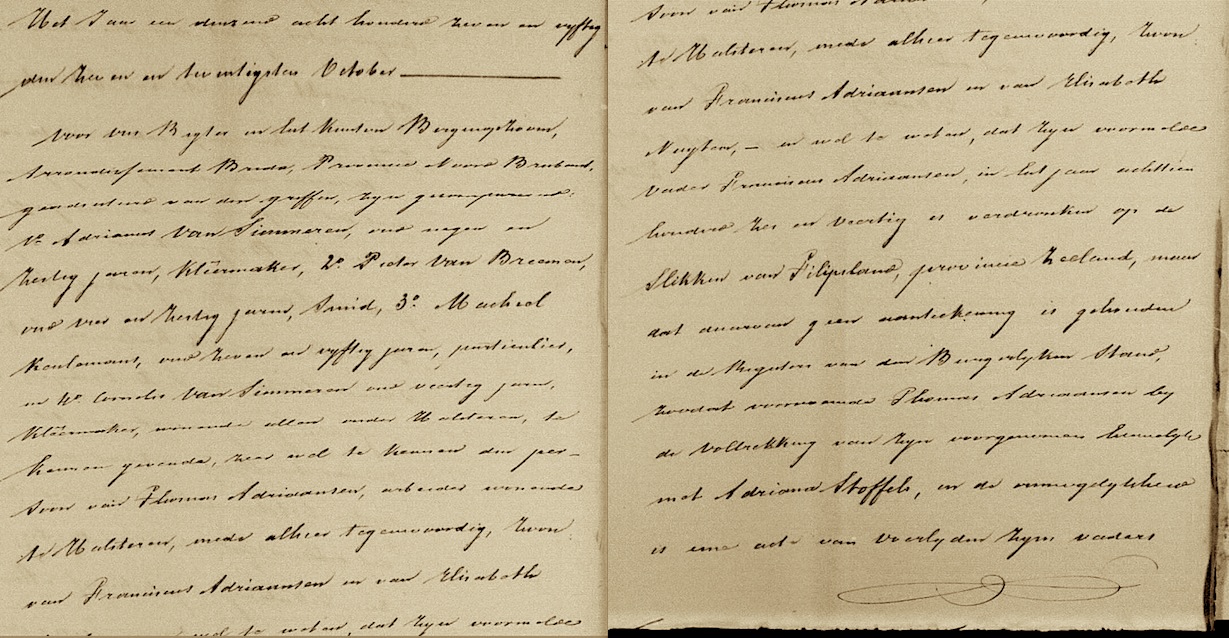 Het Jaar een duizend acht honderd zeven en vyftig
den zeven en twintigsten October
Voor ons Regter in het kanton Bergenopzoom,
Arrondissement Breda, Provincie Noord Braband,
geadsisteerd van den griffier, zyn gecompareerd:
1o Adrianus Van Simmeren, oud negen en
zestig jaren, kleermaker, 2o Pieter Van Breemen,
oud vier en zestig jaren, Smid, 3o Macheel
Keulemans, oud zeven en vyftig jaren, particulier,
en 4o Cornelis Van Simmeren oud veertig jaren,
Kleermaker, wonende allen onder Halsteren, te
kennen gevende, zeer wel te kennen den per-
soon van Thomas Adriaansen, arbeider wonende
te Halsteren, mede alhier tegenwoordig, zoon
van Franciscus Adriaansen en van Elisabeth
wel te weten, dat zyn voormelde
soon van Thomas
te Halsteren, mede alhier tegenwoordig, zoon
van Franciscus Adriaansen en van Elisabeth
Nuyten, - en wel te weten, dat zyn voormelde
vader Franciscus Adriaansen, in het jaar achttien
honderd zes en veertig is verdronken op de
Slikken van Filipsland, provincie Zeeland, maar
dat daarvan geen aanteekening is gehouden
in de Registers van den Burgerlyken Stand,
zoodat voornoemde Thomas Adriaansen by
de voltrekking van zyn voorgenomen huwelyk
met Adriana Stoffels, in de onmogelykheid
is eene acte van overlyden zyns vaders